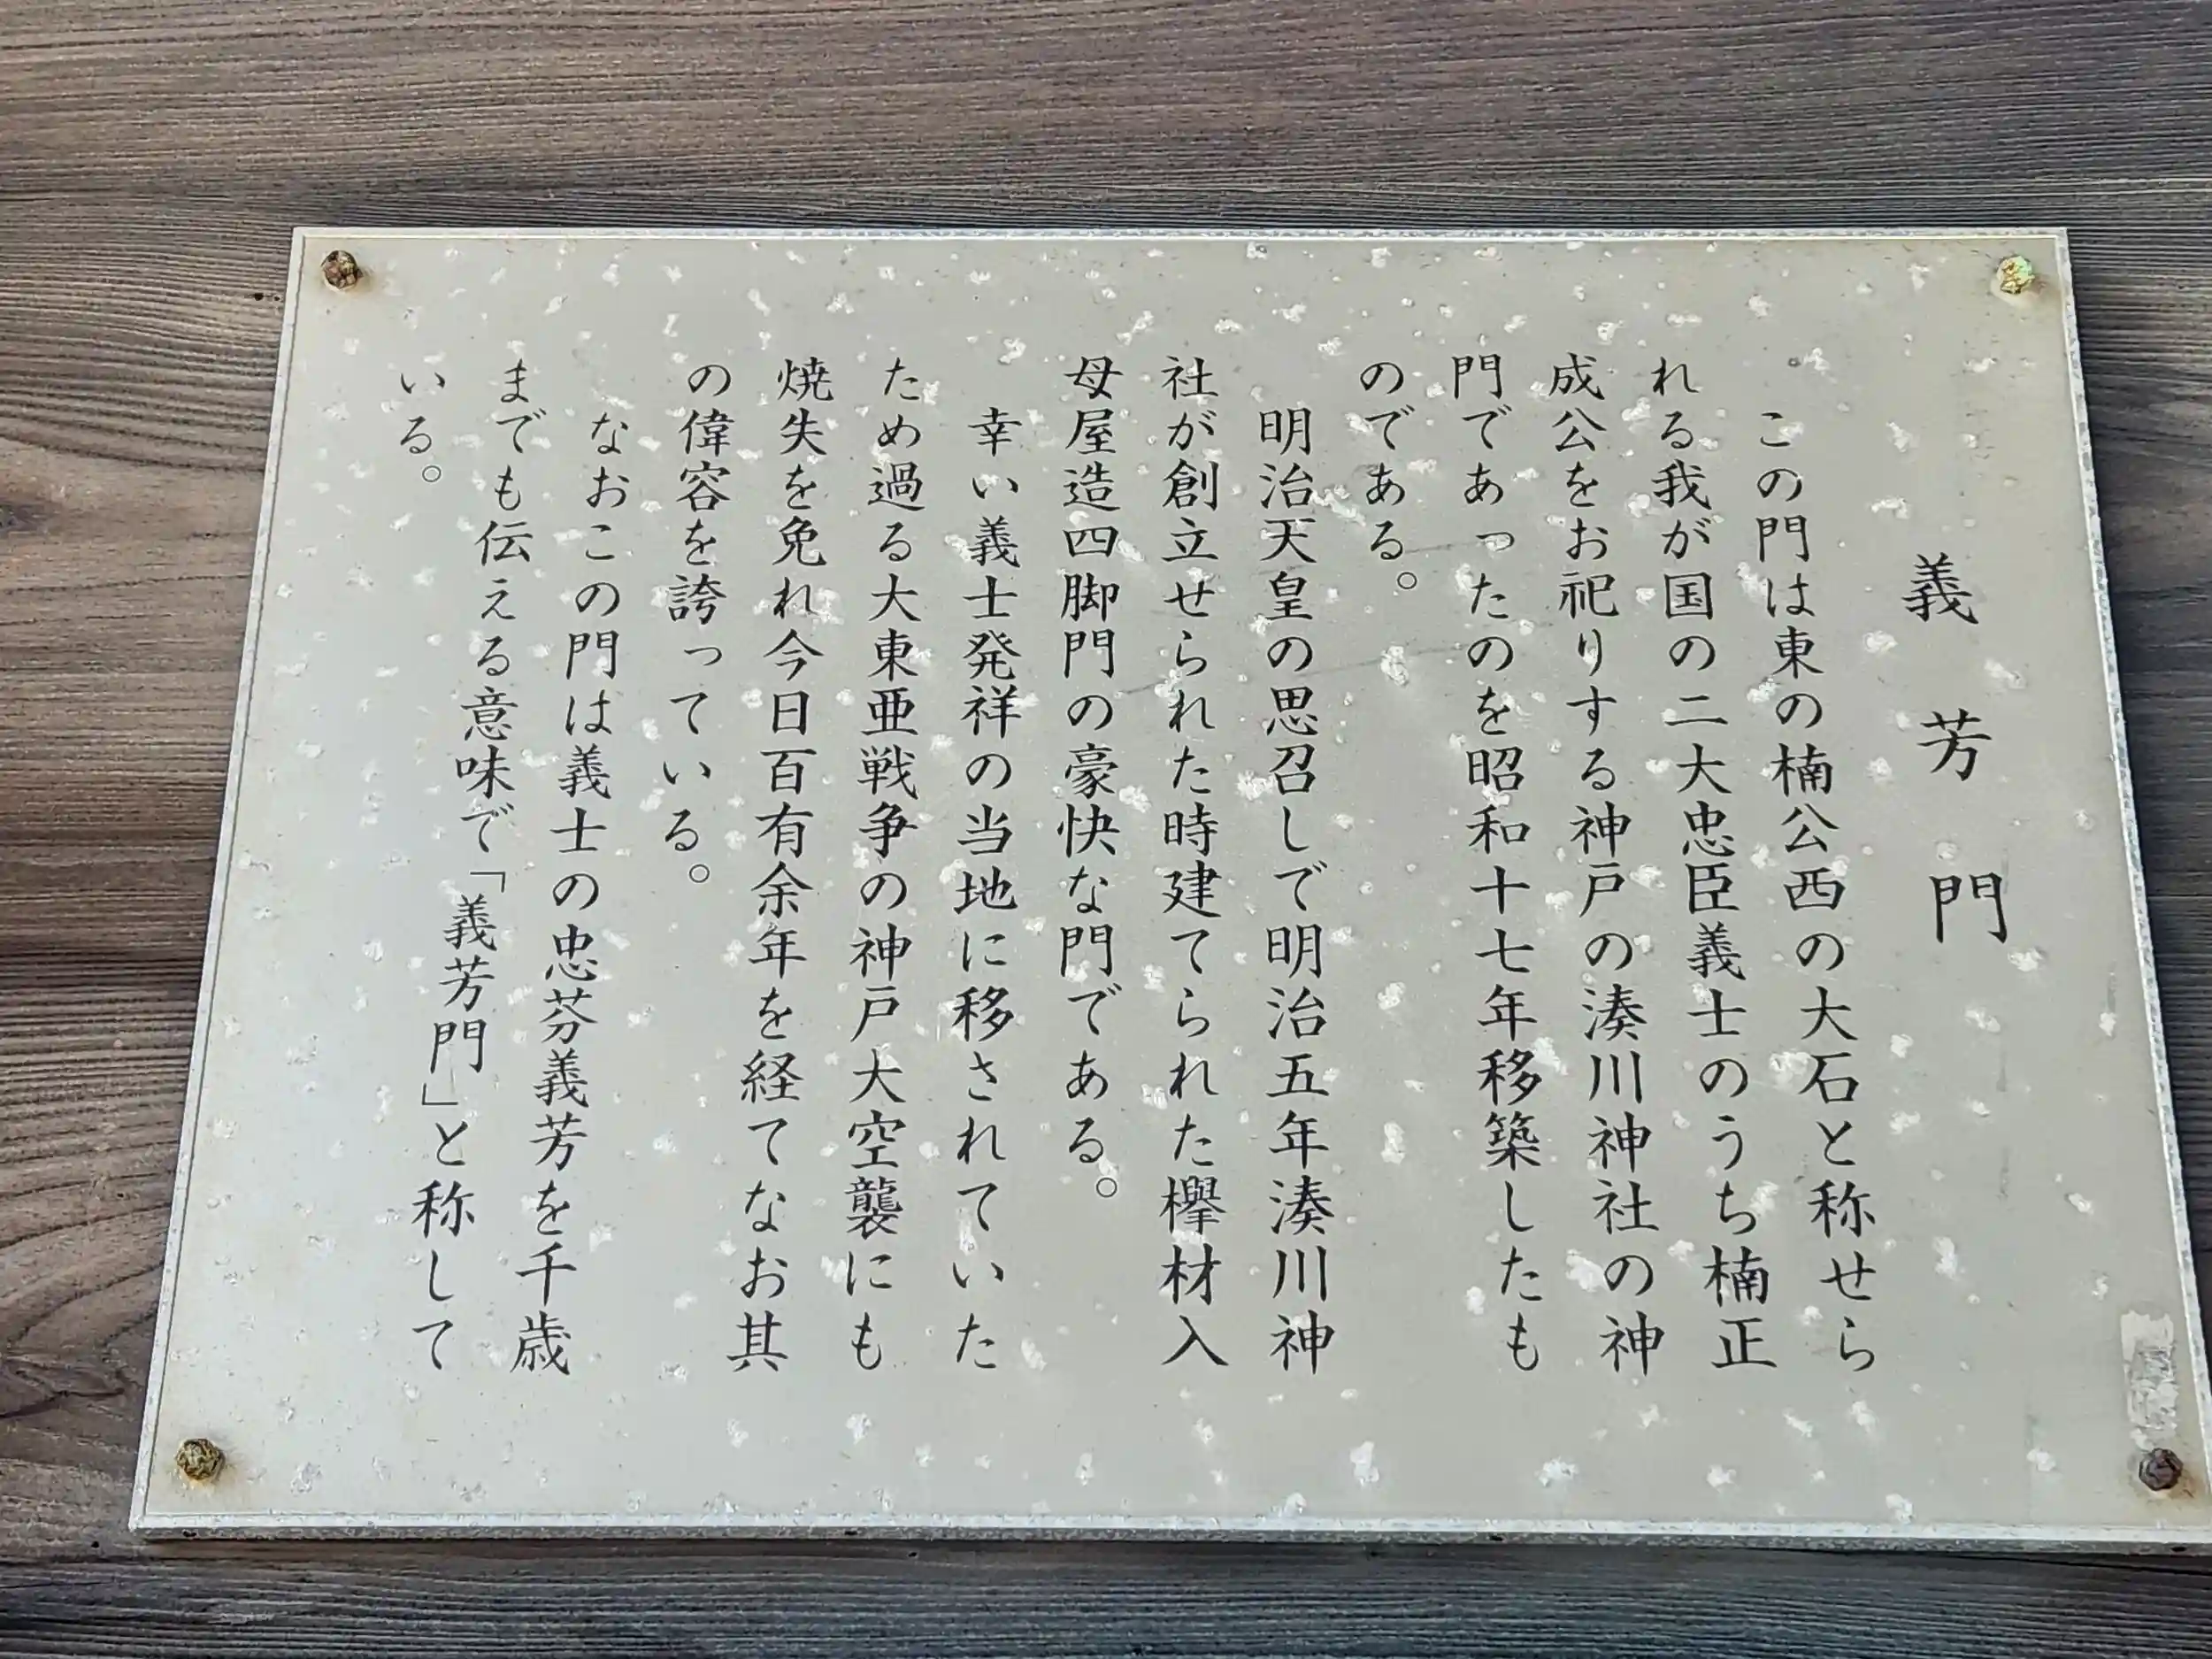 義芳門
この門は東の楠公西の大石と称せら
れる我が国の二大忠臣義士のうち楠正
成公をお祀りする神戸の湊川神社の神
門であったのを昭和十七年移築したも
のである。
明治天皇の思召しで明治五年湊川神
社が創立せられた時建てられた欅材入
母屋造四脚門の豪快な門である。
幸い義士発祥の当地に移されていた
ため過る大東亜戦争の神戸大空襲にも
焼失を免れ今日百有余年を経てなお其
の偉容を誇っている。
なおこの門は義士の忠芬義芳を千歳
までも伝える意味で「義芳門」と称して
いる。